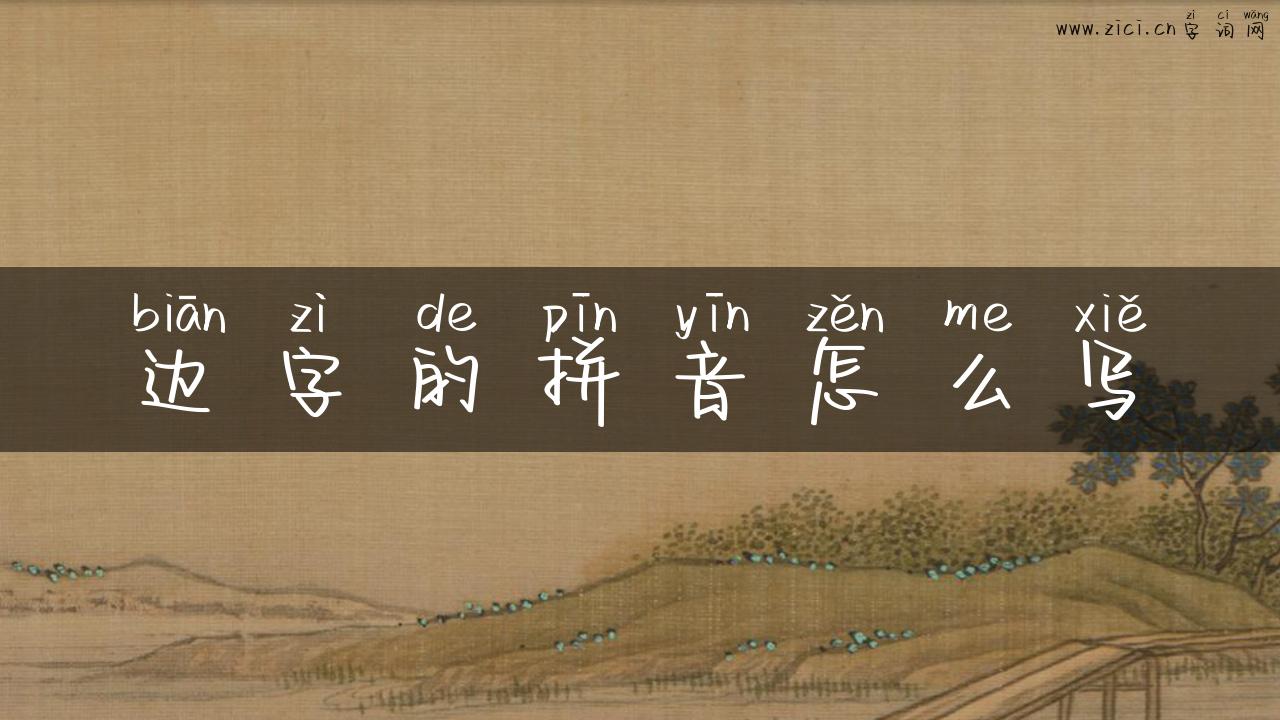 zì cí wǎng
www.zici.cn字词网
biān zì de pīn yīn zěn me xiě
边字的拼音怎么写